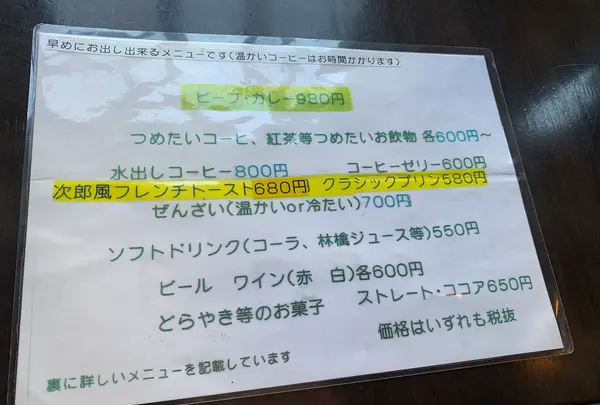 早めにお出し出来るメニューです(温かいコーヒーはお時間かかります)
ビーフ・カレー980円
つめたいコーヒ、紅茶等つめたいお飲物 各600円～
水出しコーヒー800円 コーヒーゼリー600円
次郎風フレンチトースト680円 クラシックプリン580円
ぜんざい(温かいor冷たい)700円
ソフトドリンク(コーラ、林檎ジュース等)550円
ビール ワイン(赤 白)各600円
どらやき等のお菓子 ストレート・ココア650円
価格はいずれも税抜
裏に詳しいメニューを記載しています